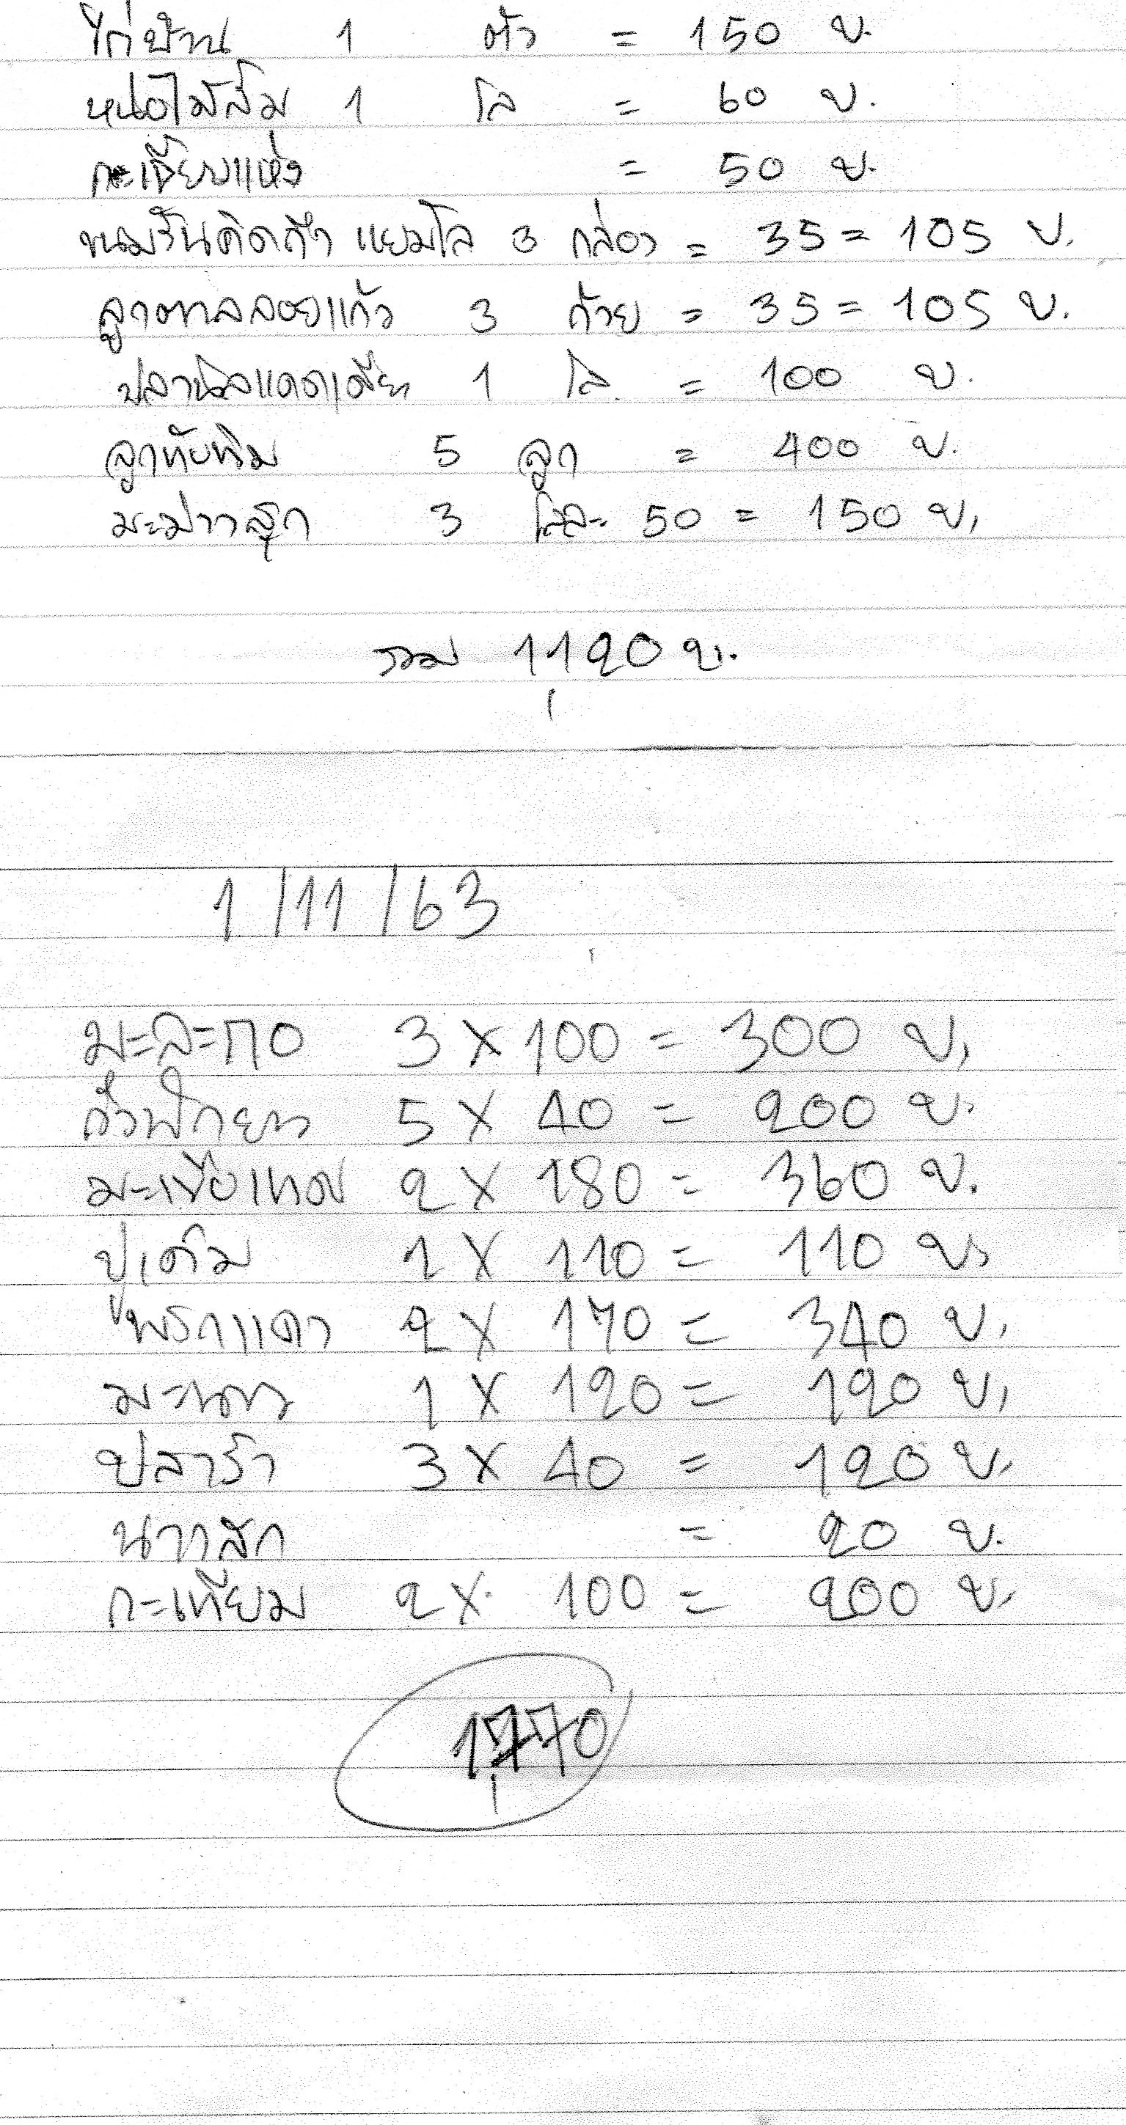 ไก่บ้าน 1 ตัว = 150 บ.
หน่อไม้ส้ม 1 โล = 60 บ.
กะเจี๊ยบแห้ง = 50 บ.
แยมโล 3 กล่อง = 35 = 105 บ.
ลูกตาลลอยแก้ว 3 ถ้วย = 35 = 105 บ.
ปลานิลแดดเดียว 1 โล = 100 บ.
ลูกทับทิม 5 ลูก = 400 บ.
มะม่วงสุก 3 โลละ 50 = 150 บ.
รวม 1120 บ.
1/11/63
มะละกอ 3 x 100 = 300 บ.
ถั่วฝักยาว 5 x 40 = 200 บ.
มะเขือเทศ 2 x 180 = 360 บ.
ปูเค็ม 1 x 110 = 110 บ.
พริกแดง 2 x 170 = 340 บ.
มะนาว 1 x 120 = 120 บ.
ปลาร้า 3 x 40 = 120 บ.
= 20 บ.
กะเทียม 2 x 100 = 200 บ.
1770